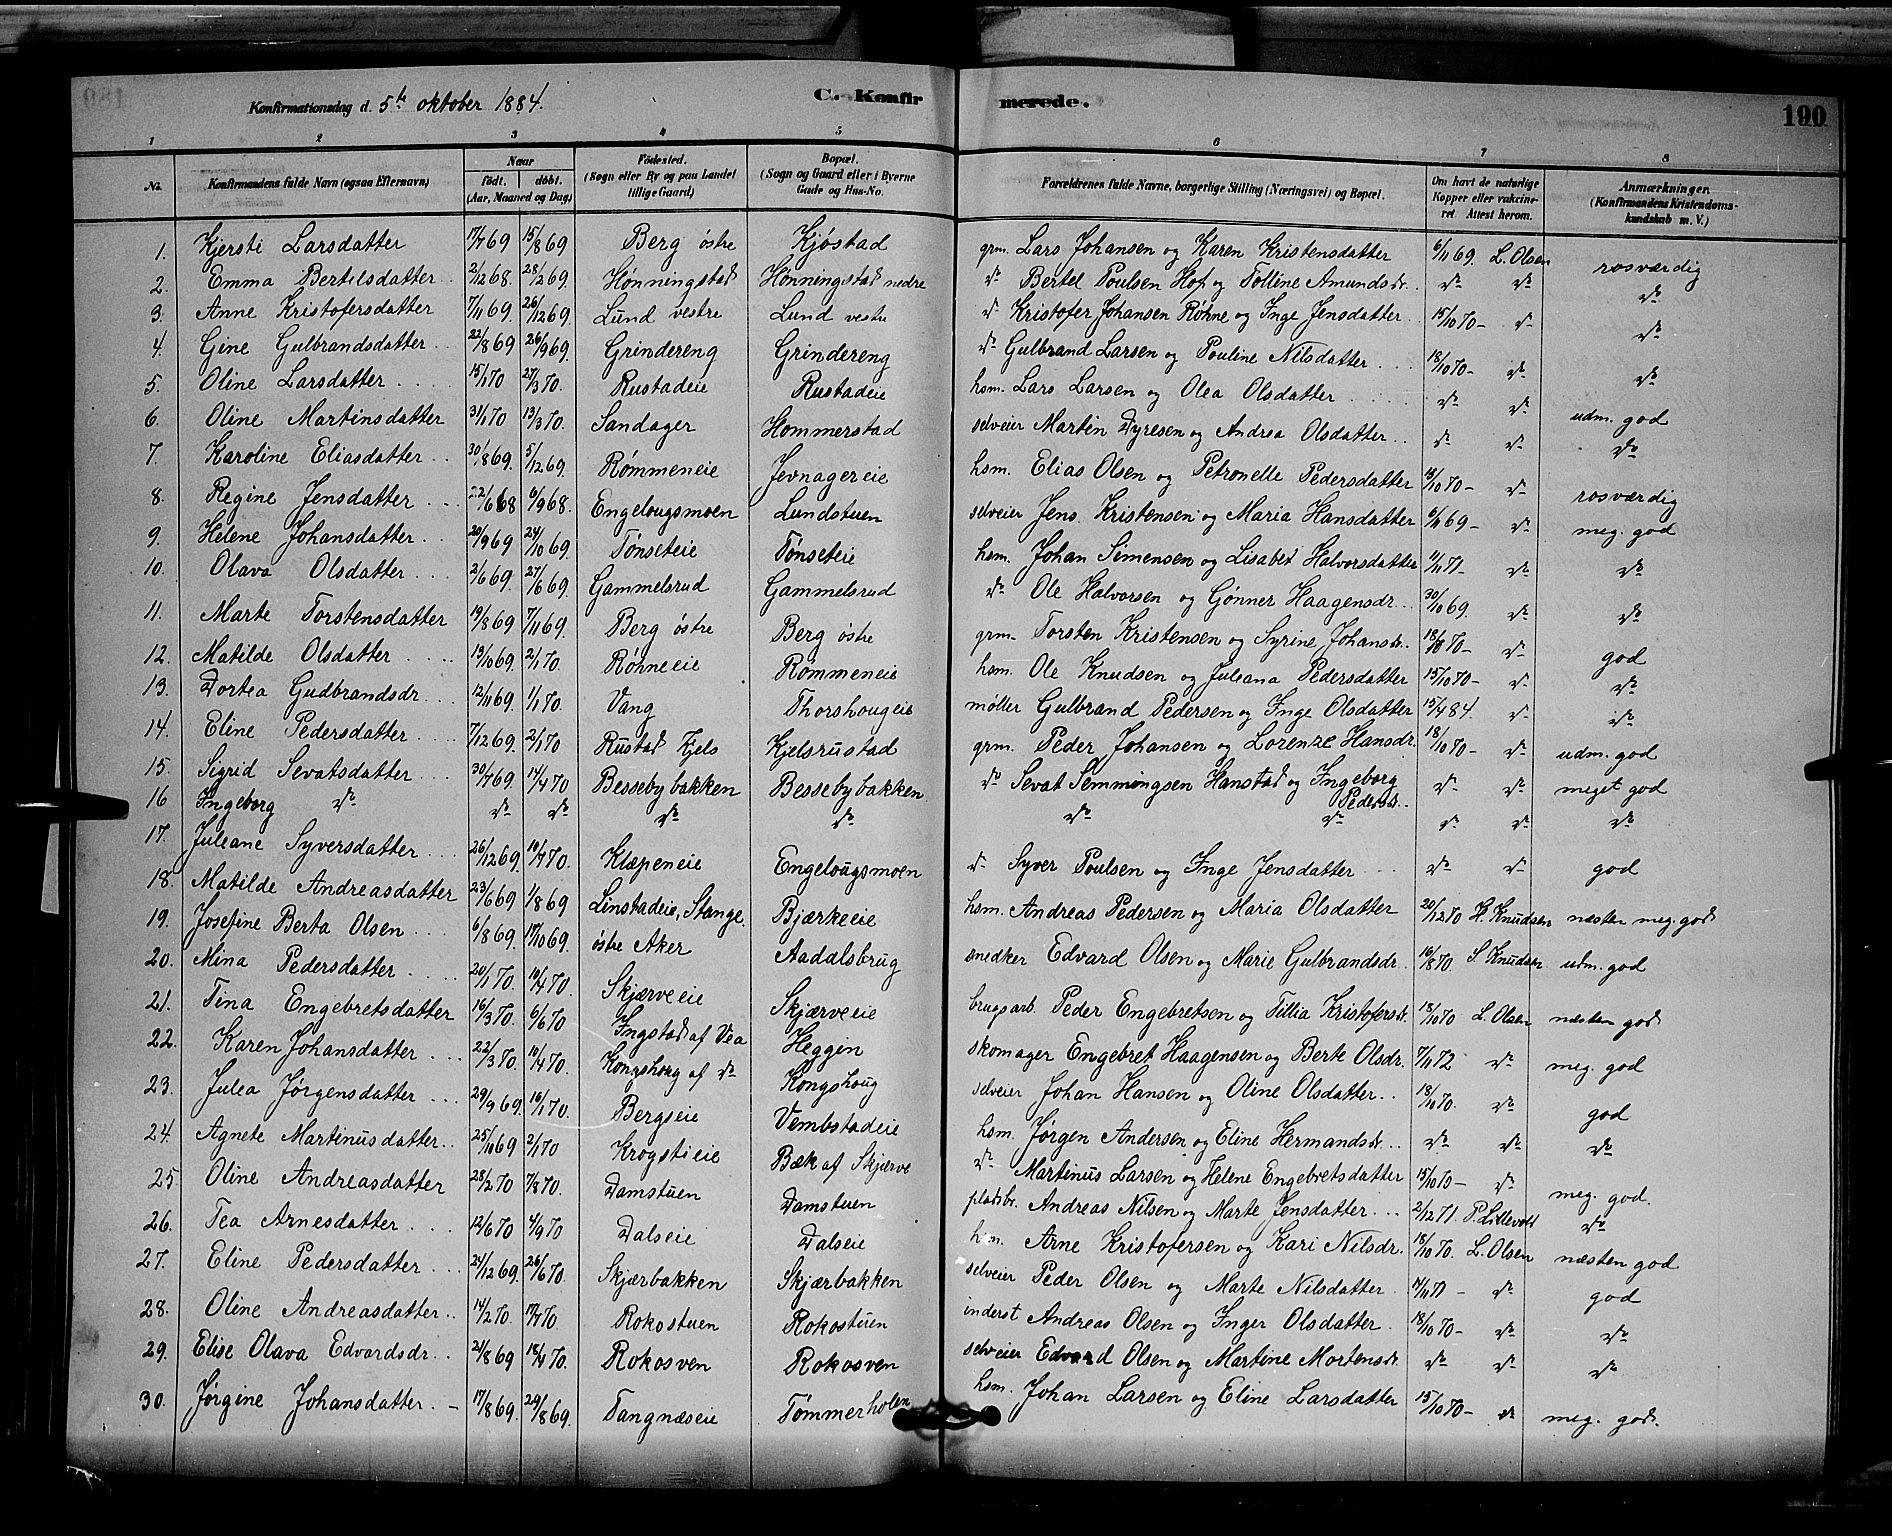 Konfirmationsdag d. 5te oktober 1884. C. Konfirmerede. 190
1 2 3 4 5 6 7 8
No. Konfirmandens fulde Navn (ogsaa Efternavn) Naar født. døbt. (Aar, Maaned og Dag) Fødested. (Sogn eller By og paa Landet tillige Gaard) Bopæl. (Sogn og Gaard eller i Byerne Gade og Hus-No. Forældrenes fulde Navne, borgerlige Stilling (Næringsvei) og Bopæl. Om havt de naturlige Kopper eller vaccineret. Attest herom. Anmærkninger. (Konfirmandens Kristendomskundskab m. V.)
1. Kjersti Larsdatter 17/7 69 15/8 69 Berg østre Kjøstad grm. Lars Johansen og Karen Kristensdatter 6/11 69. L. Olsen rosværdig
2. Emma Bertelsdatter 2/12 68. 28/2 69. Hønningstad Hønningstad nedre do Bertel Poulsen Hof og Tolline Amundsdr. do do do
3. Anne Kristofersdatter 7/11 69. 26/12 69 Lund vestre Lund vestre do Kristofer Johansen Røhne og Inge Jensdatter 15/10 70- do do
4. Gine Gulbrandsdatter 22/8 69 26/9 69. Grindereng Grindereng do Gulbrand Larsen og Pouline Nilsdatter 18/10 70- do do
5. Oline Larsdatter 15/1 70 27/3 70. Rustadeie Rustadeie hsm. Lars Larsen og Olea Olsdatter do do
6. Oline Martinsdatter 31/1 70 13/3 70. Sandager Hommerstad selveier Martin Dyresen og Andrea Olsdatter do do udm. god
7. Karoline Eliasdatter 30/8 69. 5/12 69. Rømmeneie Jevnagereie hsm. Elias Olsen og Petronelle Pedersdatter 15/10 70- do do
8. Regine Jensdatter 22/6 68 6/9 68. Engelougsmoen Lundstuen selveier Jens Kristensen og Maria Hansdatter 6/11 69- do rosværdig
9. Helene Johansdatter 20/9 69 24/10 69. Tønseteie Tønseteie hsm. Johan Simensen og Lisabet Halvorsdatter 1/11 71- do meg. god
10. Olava Olsdatter 2/6 69. 27/6 69. Gammelsrud Gammelsrud do Ole Halvorsen og Gønner Haagensdr. 30/10 69. do do
11. Marte Torstensdatter 19/8 69 7/11 69. Berg østre Berg østre grm. Torsten Kristensen og Syrine Johansdr. 18/10 70- do do
12. Matilde Olsdatter 13/10 69. 2/1 70. Røhneeie Rømmeneie hsm. Ole Knudsen og Juleana Pedersdatter 15/10 70- do god
13. Dortea Gudbrandsdr. 12/11 69. 1/1 70. Vang Thorshougeie møller Gulbrand Pedersen og Inge Olsdatter 15/4 84. do do
14. Eline Pedersdatter 7/12 69. 2/1 70 Rustad Kjels Kjelsrustad grm. Peder Johansen og Lorenze Hansdr. 18/10 70- do do
15. Sigrid Sevatsdatter 30/7 69. 14/4 70 Bessebybakken Bessebybakken do Sevat Semmingsen Hanstad og Ingeborg Pedersdr. do do udm. god
16 Ingeborg do do do do do do do do do meget god
17. Juleane Syversdatter 26/12 69. 10/7 70. Klæpeneie Engelougsmoen do Syver Poulsen og Inge Jensdatter do do god
18. Matilde Andreasdatter 23/6 69 1/8 69 Linstadeie, Stange. Bjærkeeie hsm. Andreas Pedersen og Maria Olsdatter 20/12 70 H. Knudsen næsten meg. god
19. Josefine Berta Olsen 6/8 69. 17/10 69. østre Aker Aadalsbrug snedker Edvard Olsen og Marie Gulbrandsdr. 16/8 70. S. Knudsen udm. god
20. Mina Pedersdatter 20/1 70. 10/4 70. Skjærveeie Skjærveeie brugsarb. Peder Engebretsen og Tillia Kristofersdr. 18/10 70 L. Olsen næsten god
21. Tina Engebretsdatter 16/3 70. 6/6 70 Ingstad af Vea Heggin skomager Engebret Haagensen og Berte Olsdr. 7/11 72 do meg. god
22. Karen Johansdatter 22/3 70. 10/4 70. Kongshoug af do Kongshoug selveier Johan Hansen og Oline Olsdatter 18/10 70. do god
23. Julea Jørgensdatter 29/9 69. 16/1 70. Bergseie Vembstadeie hsm. Jørgen Andersen og Eline Hermandsdr. do do do
24. Agnete Martinusdatter 25/10 69 2/1 70 Krogstieie Bæk af Skjærve do Martinus Larsen og Helene Engebretsdatter 15/10 70- do meg. god.
25 Oline Andreasdatter 28/2 70 7/8 70. Damstuen Damstuen pladsbr. Andreas Nilsen og Marte Jensdatter 2/12 71. P. Lillevold do
26. Tea Arnesdatter 12/6 70 4/9 70 Dalseie Dalseie hsm. Arne Kristofersen og Kari Nilsdr. 18/10 70. L. Olsen næsten god
27. Eline Pedersdatter 24/12 69. 26/6 70. Skjærbakken Skjærbakken selveier Peder Olsen og Marte Nilsdatter 14/11 71- do god
28. Oline Andreasdatter 14/2 70. 17/7 70. Rokostuen Rokostuen inderst Andreas Olsen og Inger Olsdatter 18/10 70- do do
29. Elise Olava Edvardsdr. 21/8 69 18/4 70. Rokosven Rokosven selveier Edvard Olsen og Martine Mortensdr. do do do
30. Jørgine Johansdatter 17/8 69. 29/8 69. Tangnæseie Tømmerholen hsm. Johan Larsen og Eline Larsdatter 15/10 70- do meg. god.